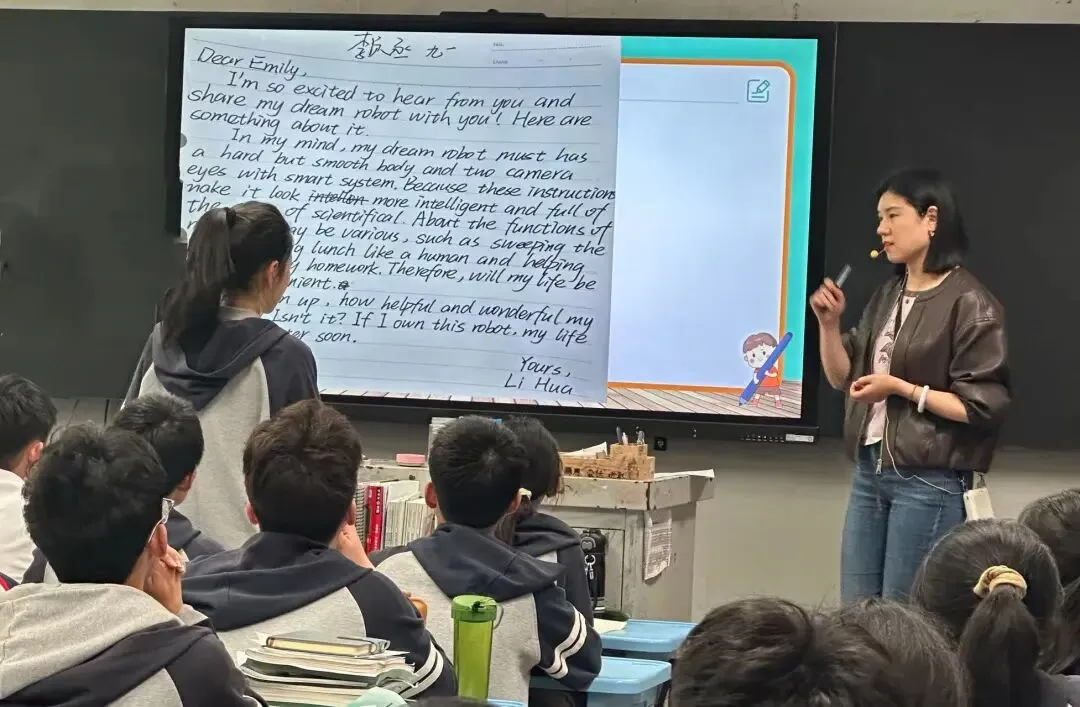 九一
Dear Emily,
I'm so excited to hear from you and
share my dream robot with you! Here are
something about it.
In my mind, my dream robot must has
a hard but smooth body and two camera
eyes with smart system. Because these instructions
make it look more intelligent and full of
the of scientifical. About the functions of
be various, such as sweeping the
lunch like a human and helping
homework. Therefore, will my life be
up, how helpful and wonderful my
Isn't it? If I own this robot, my life
soon.
Yours,
Li Hua